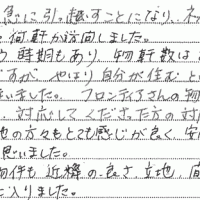 急に引っ越すことになり、ネ
何軒か訪問しました。
う時期もあり、物件数は
すが、やはり自分が住むと
いました。フロンティアさんの物
、対応してくださった方の対
他の方々もとても感じが良く、安
思いました。
物件も近隣の良さ、立地、
に入りました。